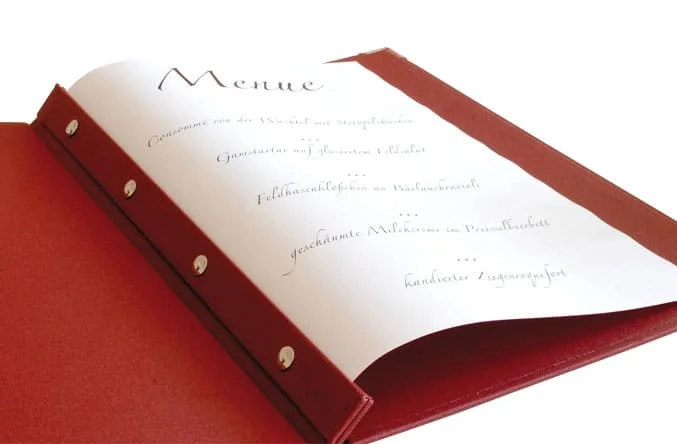 Menue
Consommé von der Wachtel mit Steinpilzkuchen
...
Gamstartar auf glasiertem Feldsalat
...
Feldhasenklößchen an Bärlauchravioli
...
geschäumte Milchcreme im Preiselbeerbett
...
kandierter Ziegenroquefort